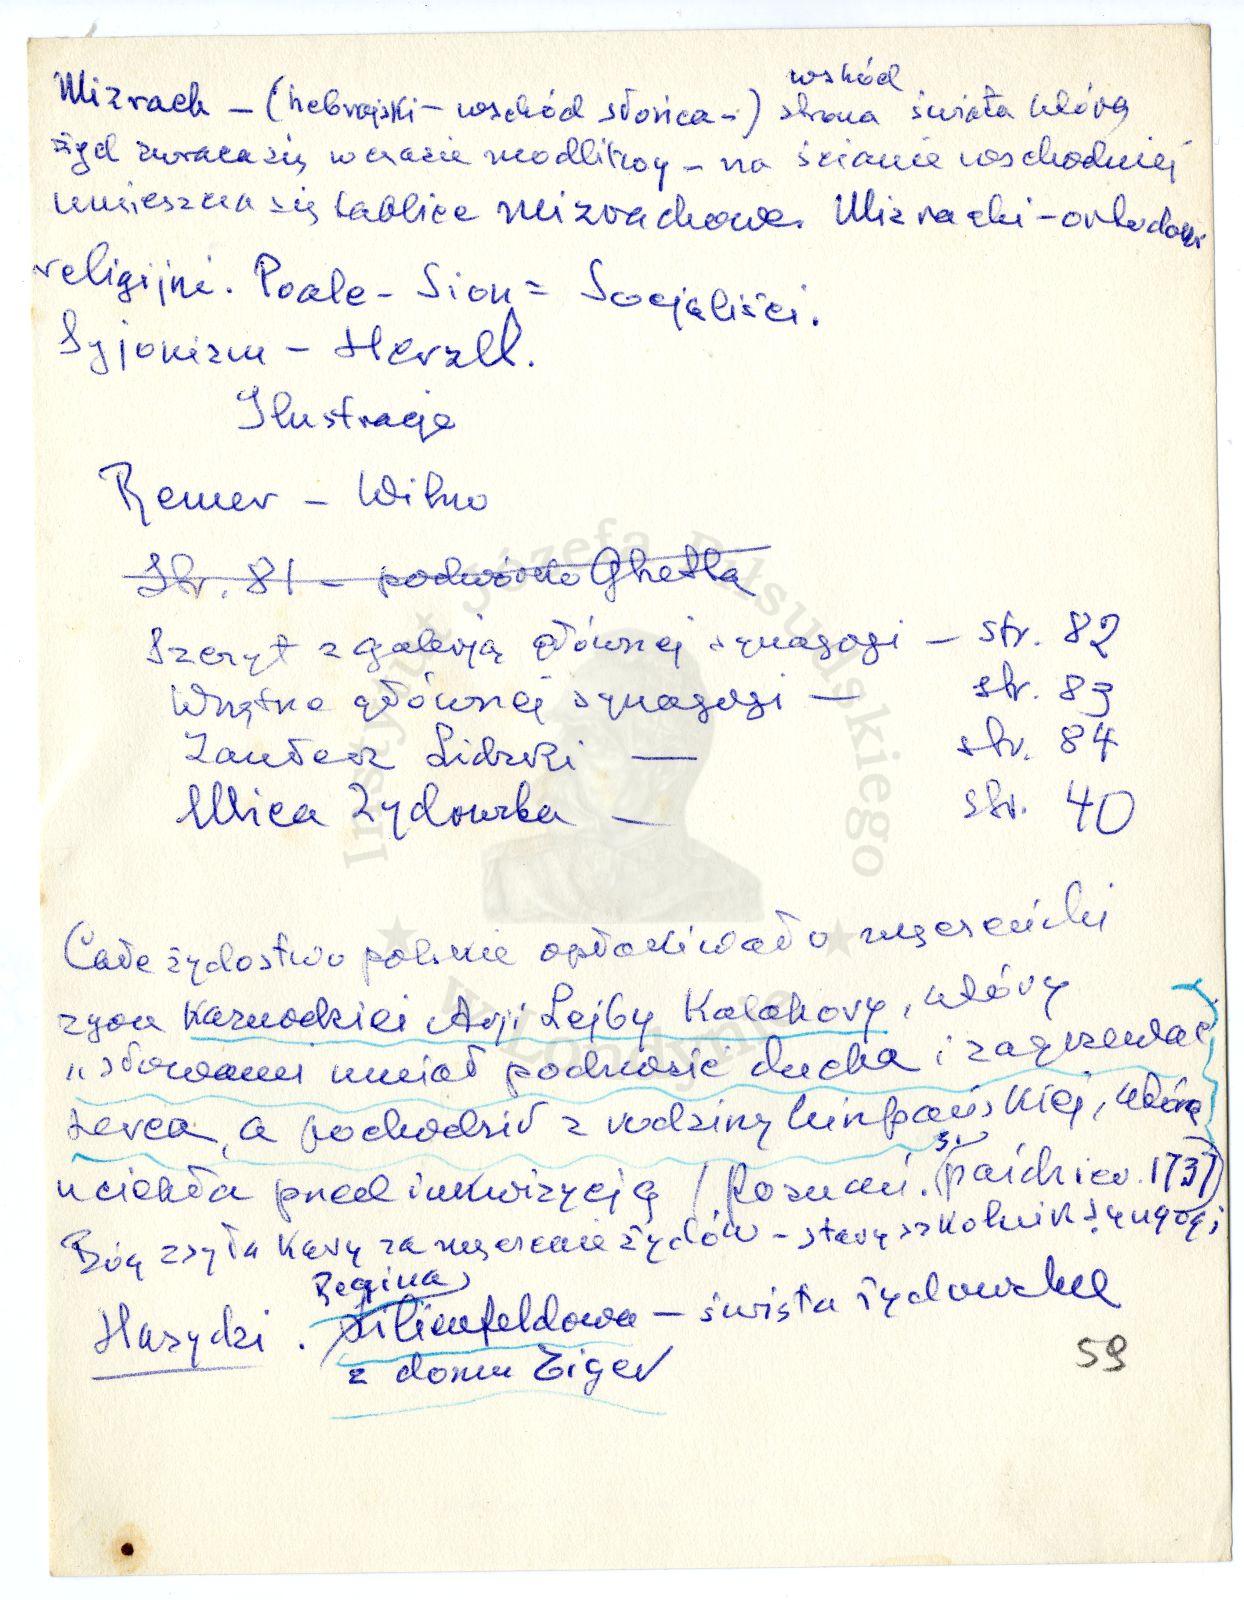 wschód
Mizrach – (hebrajski – wschód słońca –) strona świata którą
żyd zwraca się w czasie modlitwy – na ścianie wschodniej
umieszcza się tablice mizrachowe. Mizrachi – ortodoksi
religijni. Poale – Sion = Socjaliści.
Syjonizm – Herzl.
Ilustracje
Remer – Wilno
Str. 81 – podwórko Ghetta
Szczyt z galerją głównej synagogi – str. 82
Wnętrze głównej synagogi – str. 83
Zaułek Lidzki — str. 84
Ulica Żydowska — str. 40
Całe żydostwo polskie opłakiwało męczeński
zgon kaznodziei Arji Lejby Kalahory, który
"słowami umiał podnosić ducha i zagrzewać
serca, a pochodził z rodziny hiszpańskiej, która
uciekła przed inkwizycją (Poznań. paździer. 1737)
Bóg zsyła kary za męczenie żydów – stary szkolnik synagogi
Regina
Hasydzi. Lilienfeldowa – święta żydowskie
z domu Eiger
59
Instytut Józefa Piłsudskiego
w Londynie